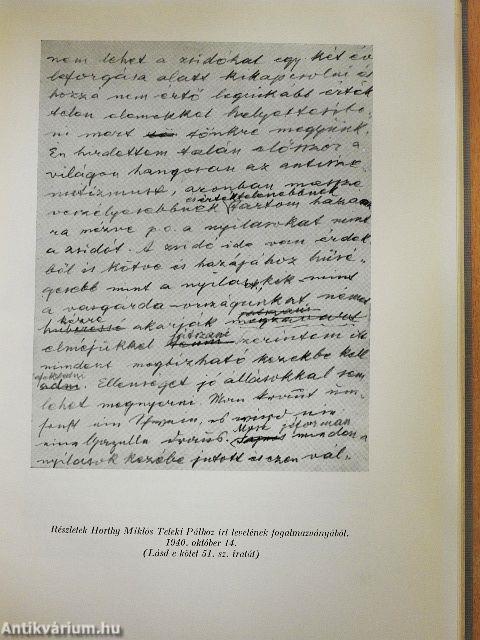 nem lehet a zsidókat egy két év
leforgása alatt kikapcsolni és
hozzá nem értő leginkább érték
telen elemekkel helyettesíte
ni mert tönkre megyünk.
Én hirdettem talán először a
világon hangosan az antisze
mitizmust, azonban messze
értéktelenebbnek
veszélyesebbnek tartom hazám
ra nézve p.o. a nyilasokat mint
a zsidót. A zsidó ide van érdek
ből is kötve és hazájához hűsé-
gesebb mint a nyilasok mint
a vasgárda országunkat német
kézre akarják
játszani
elméjükkel szerintem itt
mindent megbízható kezekbe kell
fektetni
adni. Ellenséget jó állásokkal sem
lehet megnyerni.
Most jóformán
minden a
nyilasok kezébe jutott és ezen val-
Részletek Horthy Miklós Teleki Pálhoz írt levelének fogalmazványából.
1940. október 14.
(Lásd e kötet 51. sz. iratát)
Antikvárium.hu